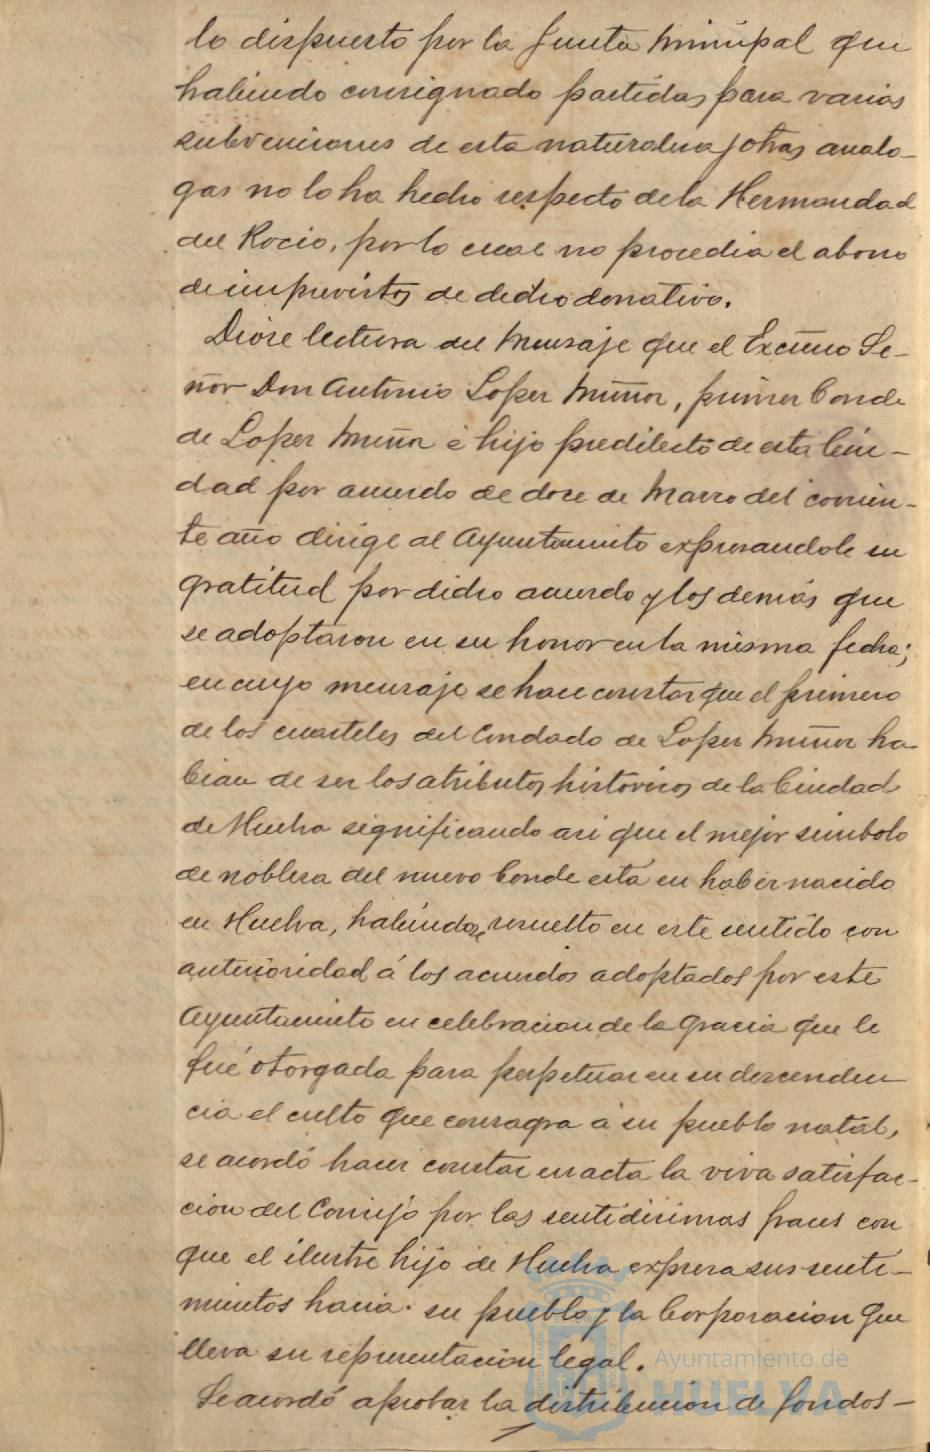 lo dispuesto por la Junta Municipal que
habiendo consignado partidas para varias
subvenciones de esta naturaleza y otras analo-
gas no lo ha hecho respecto de la Hermandad
del Rocio, por lo cual no procedia el abono
de imprevistos de dicho donativo.
Diose lectura del Mensaje que el Excmo Se-
ñor Don Antonio Lopez Muñoz, primer Conde
de Lopez Muñoz é hijo predilecto de esta Ciu-
dad por acuerdo de doce de Marzo del corrien-
te año dirige al Ayuntamiento expresandole su
gratitud por dicho acuerdo y los demás que
se adoptaron en su honor en la misma fecha;
en cuyo mensaje se hace constar que el primero
de los cuarteles del Condado de Lopez Muñoz ha
bian de ser los atributos historicos de la Ciudad
de Huelva significando asi que el mejor simbolo
de nobleza del nuevo Conde está en haber nacido
en Huelva, habiendose resuelto en este sentido con
anterioridad á los acuerdos adoptados por este
Ayuntamiento en celebracion de la gracia que le
fué otorgada para perpetuar en su descenden
cia el culto que consagra á su pueblo natal,
se acordó hacer constar en acta la viva satisfac-
cion del Consejo por las sentidisimas frases con
que el ilustre hijo de Huelva expresa sus senti-
mientos hacia su pueblo y la Corporacion que
lleva su representacion legal.
Se acordó aprobar la distribucion de fondos-
Ayuntamiento de
HUELVA